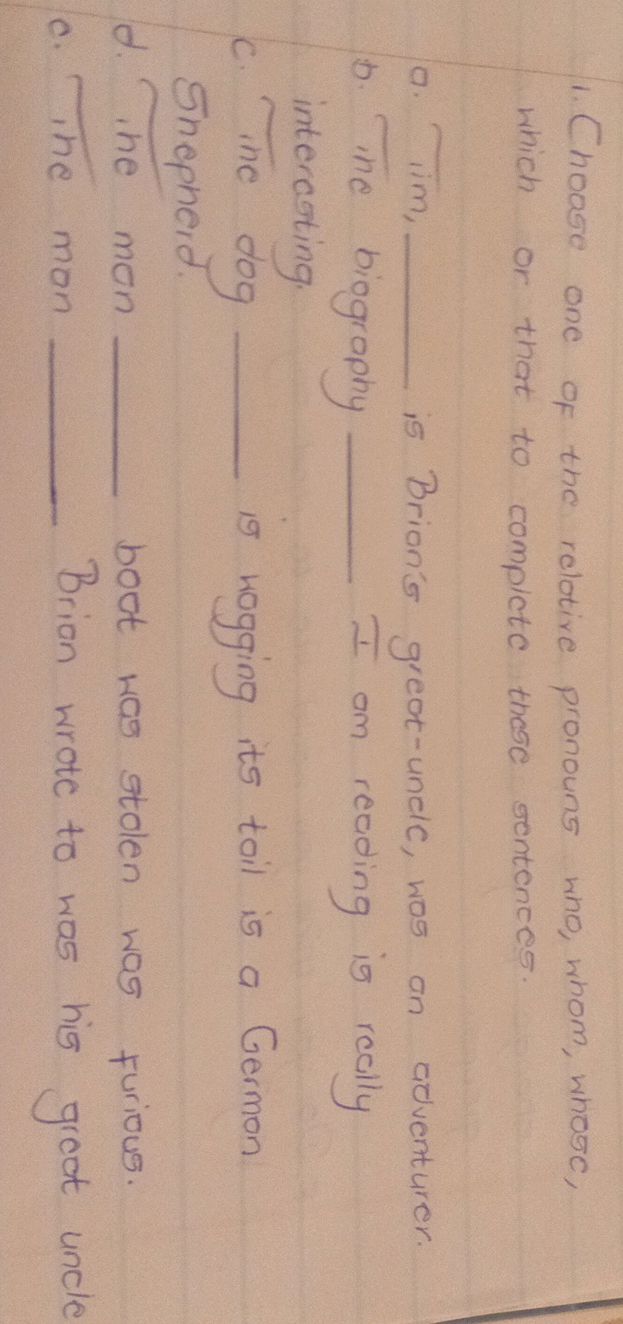 1. Choose one of the relative pronouns who, whom, whose,
which or that to complete these sentences.
a. Tim, ______ is Brian's great-uncle, was an adventurer.
b. The biography ______ I am reading is really
interesting.
c. The dog ______ is wagging its tail is a German
Shepherd.
d. The man ______ boat was stolen was furious.
e. The man ______ Brian wrote to was his great uncle